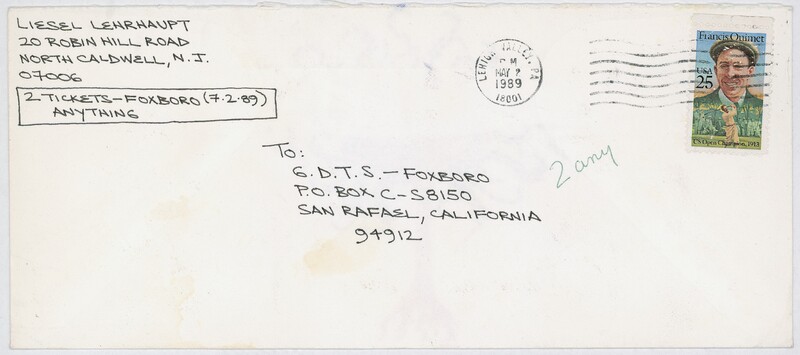 LIESEL LEHRHAUPT
20 ROBIN HILL ROAD
NORTH CALDWELL, N.J.
07006
2 TICKETS-FOXBORO (7.2.89)
ANYTHING
LEHIGH VALLEY, PA
PM
MAY 2
1989
18001
Francis Ouimet
USA
25
US Open Champion, 1913
To:
G.D.T.S.-FOXBORO
P.O. BOX C-S8150
SAN RAFAEL, CALIFORNIA
94912
2 any